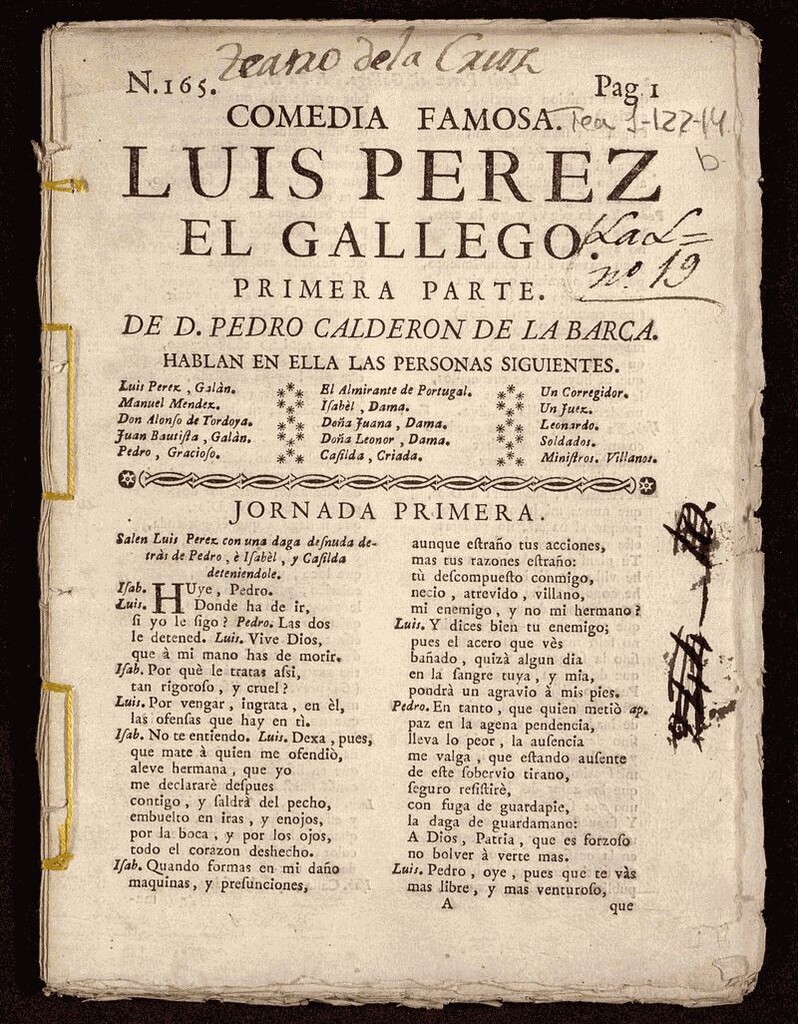 Teatro de la Cruz
N.165. Pag 1
COMEDIA FAMOSA.
Tea 1-122-14
b
LUIS PEREZ
EL GALLEGO.
nº 19
PRIMERA PARTE.
DE D. PEDRO CALDERON DE LA BARCA.
HABLAN EN ELLA LAS PERSONAS SIGUIENTES.
Luis Perez, Galàn.
Manuel Mendez.
Don Alonſo de Tordoya.
Juan Bautiſta, Galàn.
Pedro, Gracioſo.
El Almirante de Portugal.
Iſabèl, Dama.
Doña Juana, Dama.
Doña Leonor, Dama.
Caſilda, Criada.
Un Corregidor.
Un Juez.
Leonardo.
Soldados.
Miniſtros. Villanos.
JORNADA PRIMERA.
Salen Luis Perez con una daga deſnuda de-
tràs de Pedro, è Iſabèl, y Caſilda
deteniendole.
Iſab. HUye, Pedro.
Luis. Donde ha de ir,
ſi yo le ſigo? Pedro. Las dos
le detened. Luis. Vive Dios,
que à mi mano has de morir.
Iſab. Por què le tratas aſsi,
tan rigoroſo, y cruel?
Luis. Por vengar, ingrata, en èl,
las ofenſas que hay en tì.
Iſab. No te entiendo. Luis. Dexa, pues,
que mate à quien me ofendiò,
aleve hermana, que yo
me declararè deſpues
contigo, y ſaldrà del pecho,
embuelto en iras, y enojos,
por la boca, y por los ojos,
todo el corazon deshecho.
Iſab. Quando formas en mi daño
maquinas, y preſunciones,
aunque eſtraño tus acciones,
mas tus razones eſtraño:
tù deſcompueſto conmigo,
necio, atrevido, villano,
mi enemigo, y no mi hermano?
Luis. Y dices bien tu enemigo;
pues el acero que vès
bañado, quizà algun dia
en la ſangre tuya, y mia,
pondrà un agravio à mis pies.
Pedro. En tanto, que quien metiò ap.
paz en la agena pendencia,
lleva lo peor, la auſencia
me valga, que eſtando auſente
de eſte ſobervio tirano,
ſeguro reſiſtirè,
con fuga de guardapie,
la daga de guardamano:
A Dios, Patria, que es forzoſo
no bolver à verte mas.
Luis. Pedro, oye, pues que te vàs
mas libre, y mas venturoſo,
A que